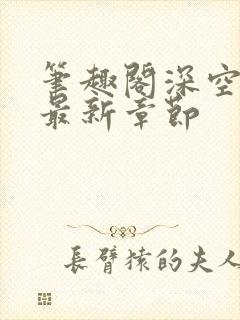 筆趣閣深空
最新章節
長臂猿的夫人